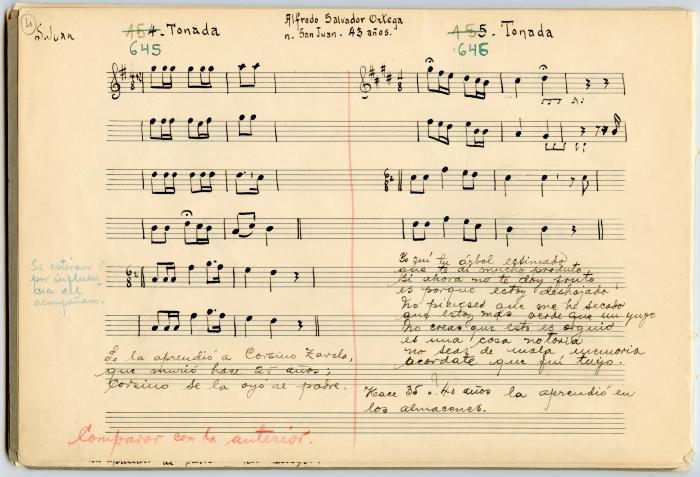 4
S. Juan
154. Tonada
645
Alfredo Salvador Ortega
n. San Juan. 43 años.
155. Tonada
646
Se estiran
por influen
cia del
acompañam.
Se la aprendió a Corsino Zavala,
que murió hace 25 años;
Corsino se la oyó al padre.
Comparar con la anterior.
Yo fuí tu árbol estimado
que te dí mucho producto
Si ahora no te doy fruto
es porque estoy deshojado
No pienses que me he secado
que estoy más verde que un yuyo
No creas que esto es orgullo
es una cosa notoria
no seas de mala memoria
acordate que fuí tuyo.
Hace 35 o 40 años la aprendió en
los almacenes.